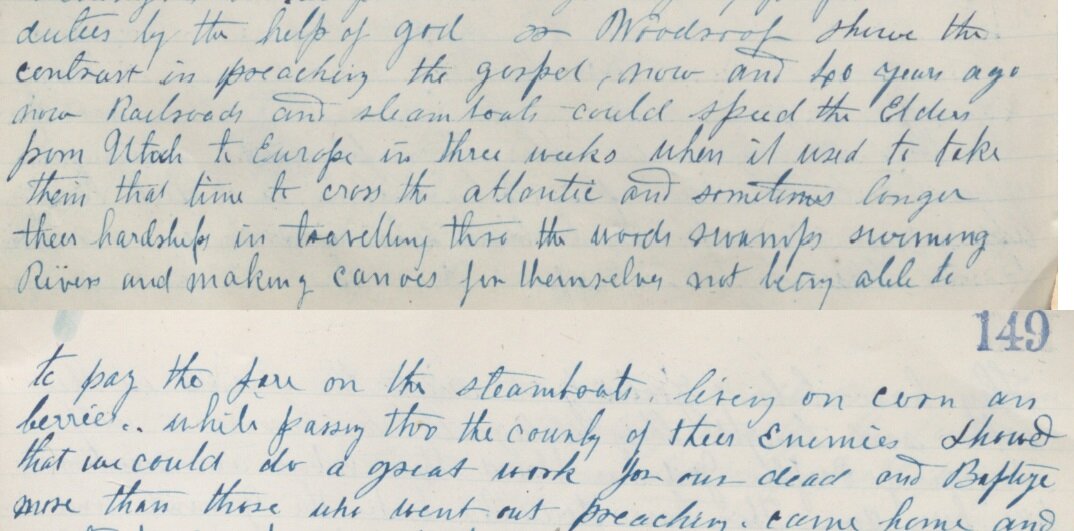 duties by the help of god or Woodroof shewe the
contrast in preaching the gospel, now and 40 years ago
now Railroads and steamboats could speed the Elders
from Utah to Europe in three weeks when it used to take
them that time to cross the atlantic and sometimes longer
theer hardships in travelling thro the woods swamps swiming
Rivers and making canoes for themselves not being able to
149
to pay the fare on the steamboats. living on corn an
berries.. while passing thro the county of theer Enemies showed
that we could do a great work for our dead and Baptize
more than those who went out preaching. came home and